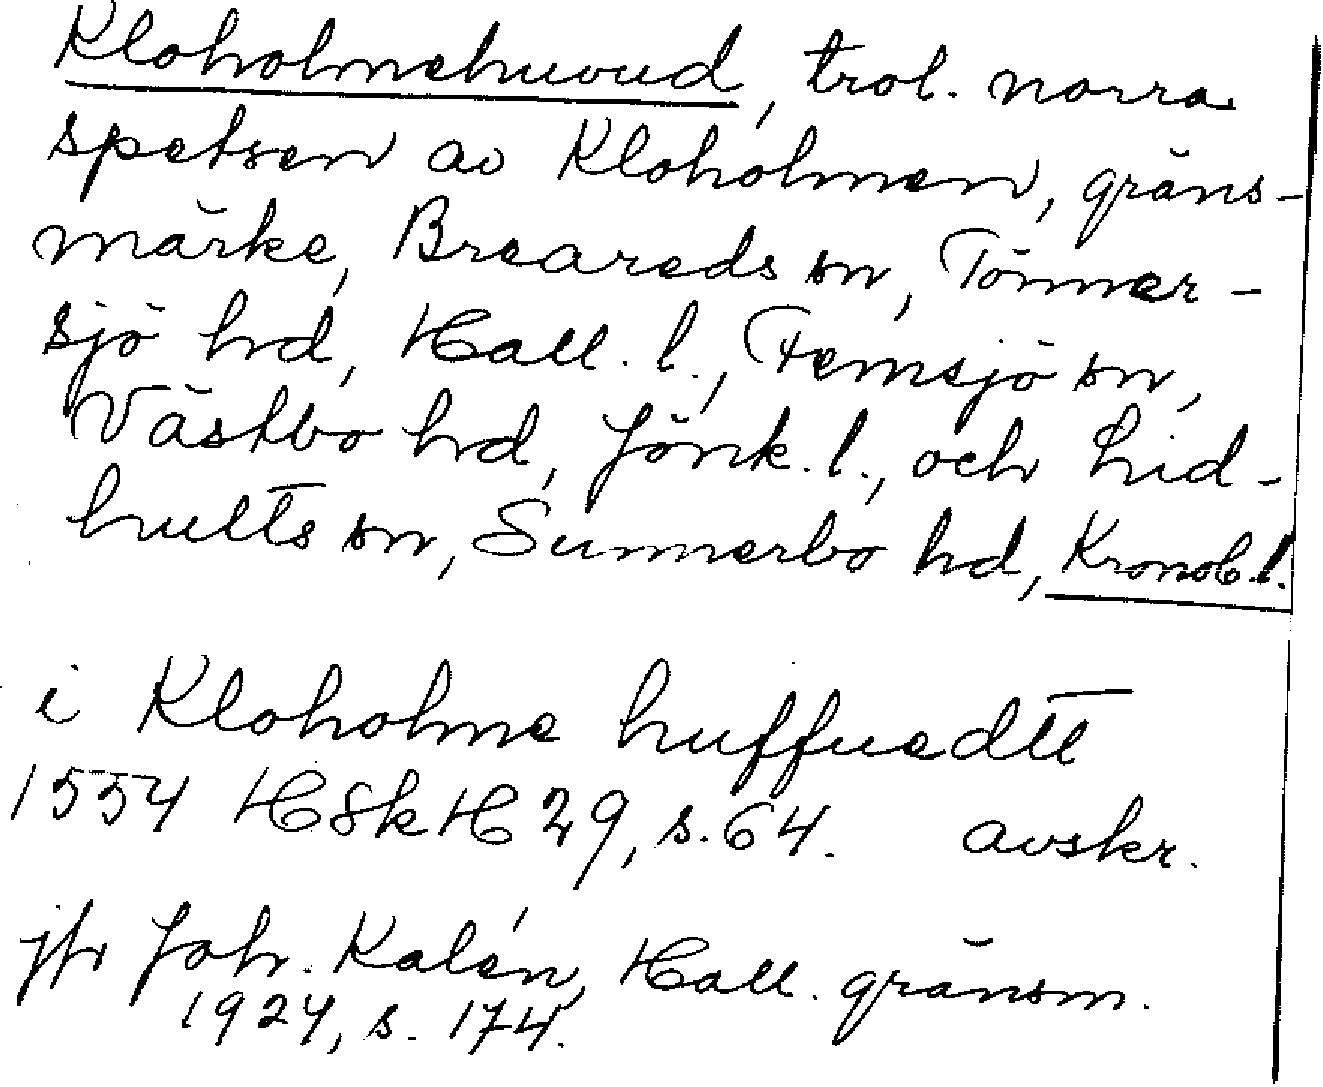 Kloholmehuvud, trol. norra
spetsen av Kloholmen, gräns-
märke, Breareds sn, Tönner-
sjö hd, Hall. l., Femsjö sn,
Västbo hd, Jönk. l., och Lid-
hults sn, Sunnerbo hd, Kronob. l.
i Kloholme huffuedtt
1554 HSkH 29, s. 64. avskr.
jfr Joh. Kalén, Hall. gränsm.
1924, s. 174.